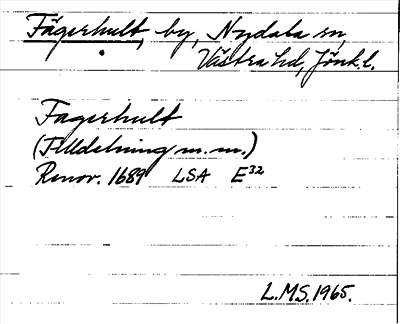 Fägerhult, by, Nydala sn,
Västra hd, Jönk.l.
Fagerhult
(Tilldelning m.m.)
Renov. 1689 LSA E32
L.MS.1965.